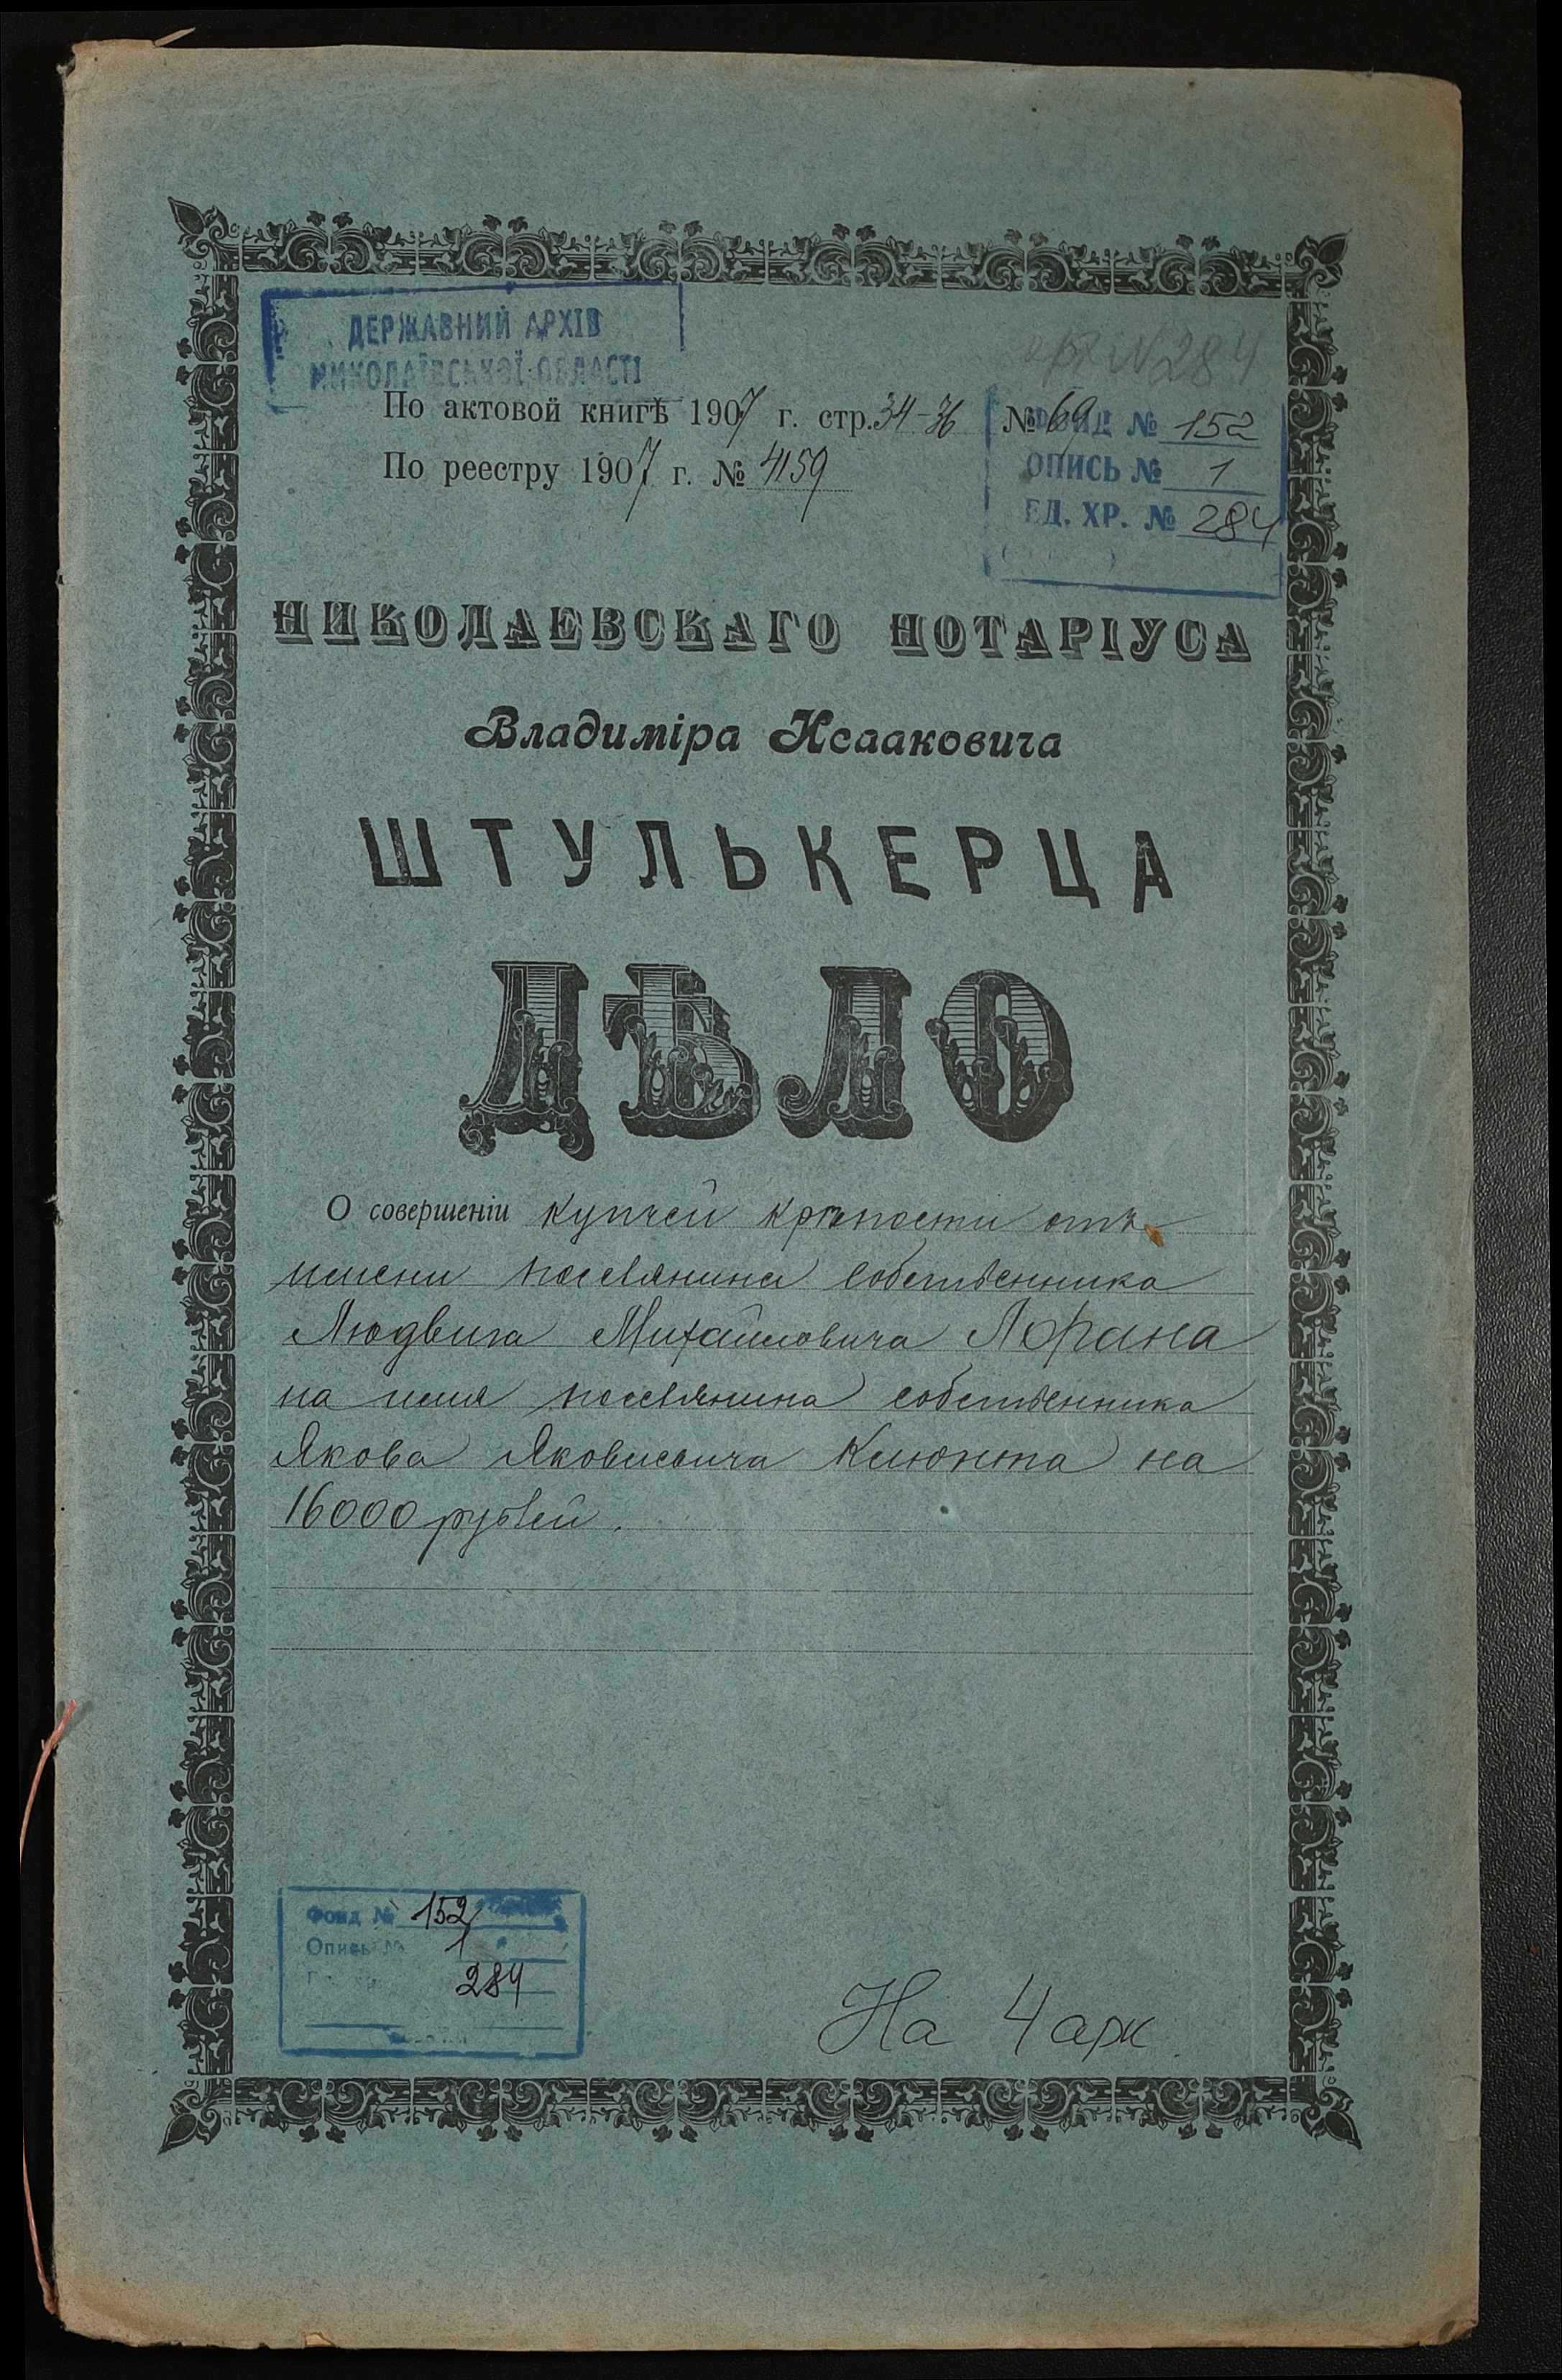 ДЕРЖАВНИЙ АРХІВ
МИКОЛАЇВСЬКОЇ ОБЛАСТІ
№ 284
По актовой книгѣ 1907 г. стр. 34-36 № 69
По реестру 1907 г. № 4159
ФОНД № 152
ОПИСЬ № 1
ЕД. ХР. № 284
НИКОЛАЕВСКАГО НОТАРІУСА
Владиміра Исааковича
ШТУЛЬКЕРЦА
ДѢЛО
О совершеніи купчей крѣпости отъ
имени поселянина собственника
Людвига Михайловича Лорана
на имя поселянина собственника
Якова Яковлевича Клюнта на
16000 рублей.
Фонд № 152
Опись № 1
284
На 4 арк.